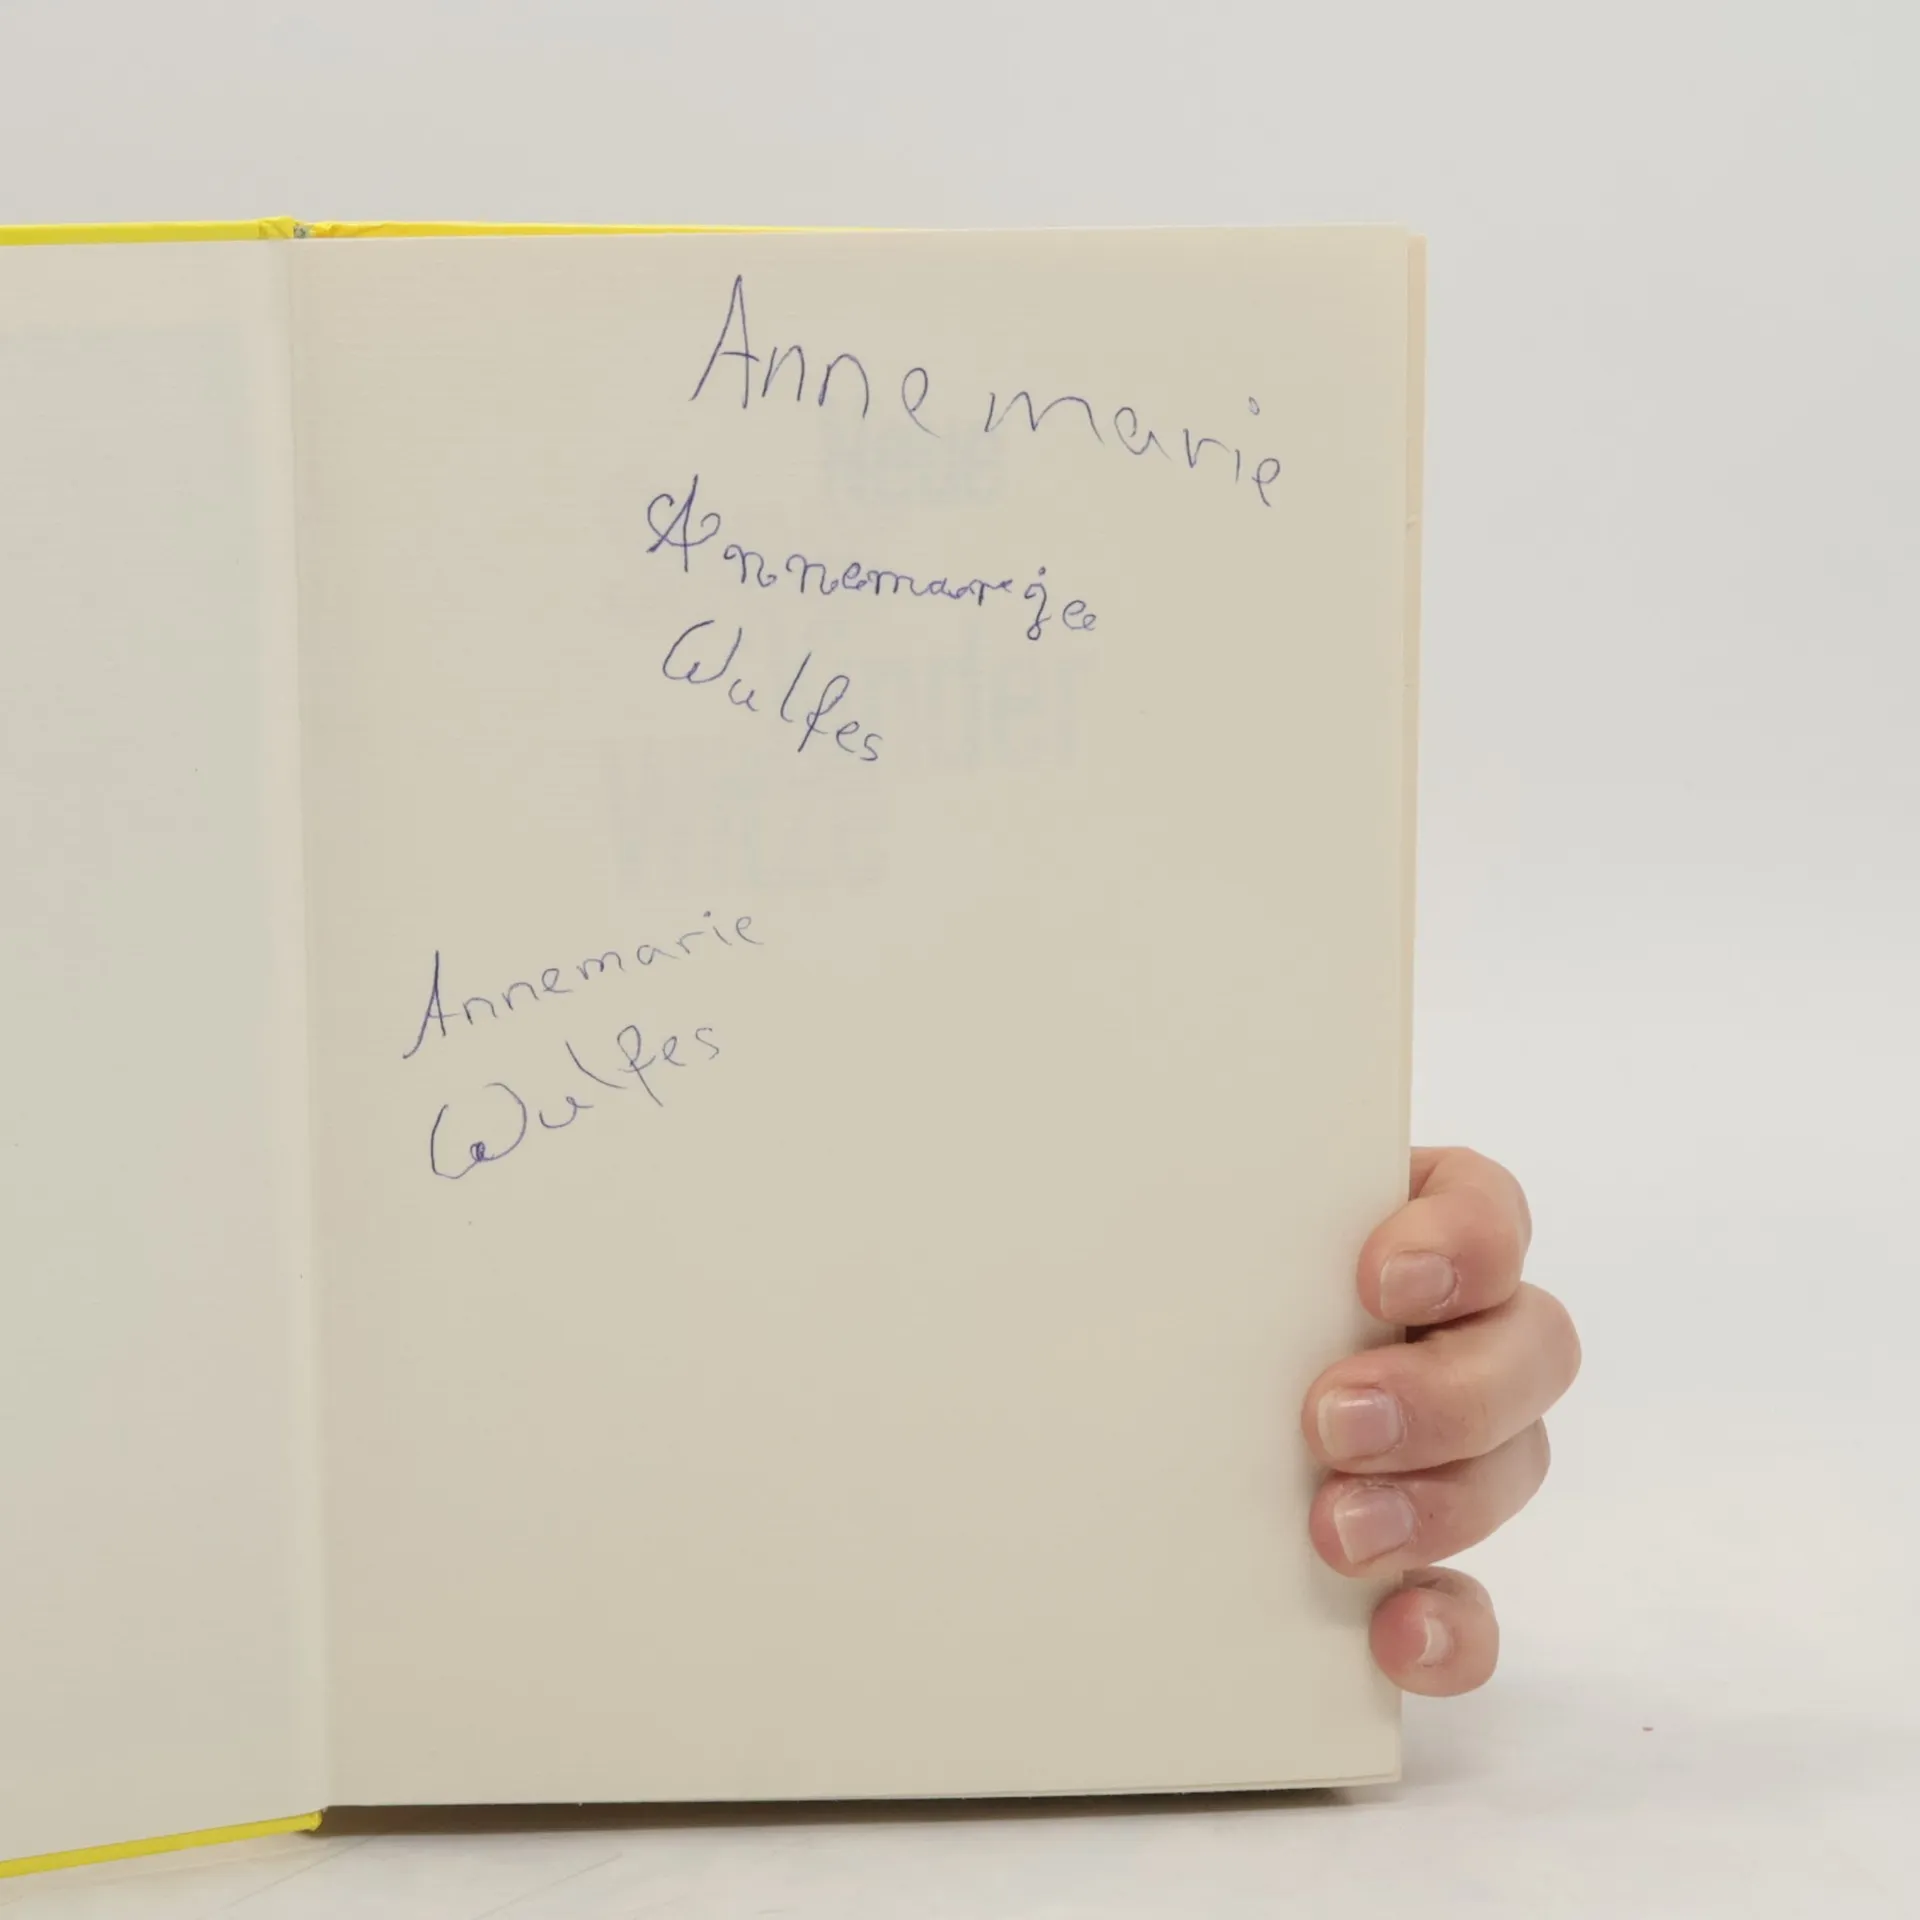 Annemarie
Annemarie
Wulfes
Annemarie
Wulfes